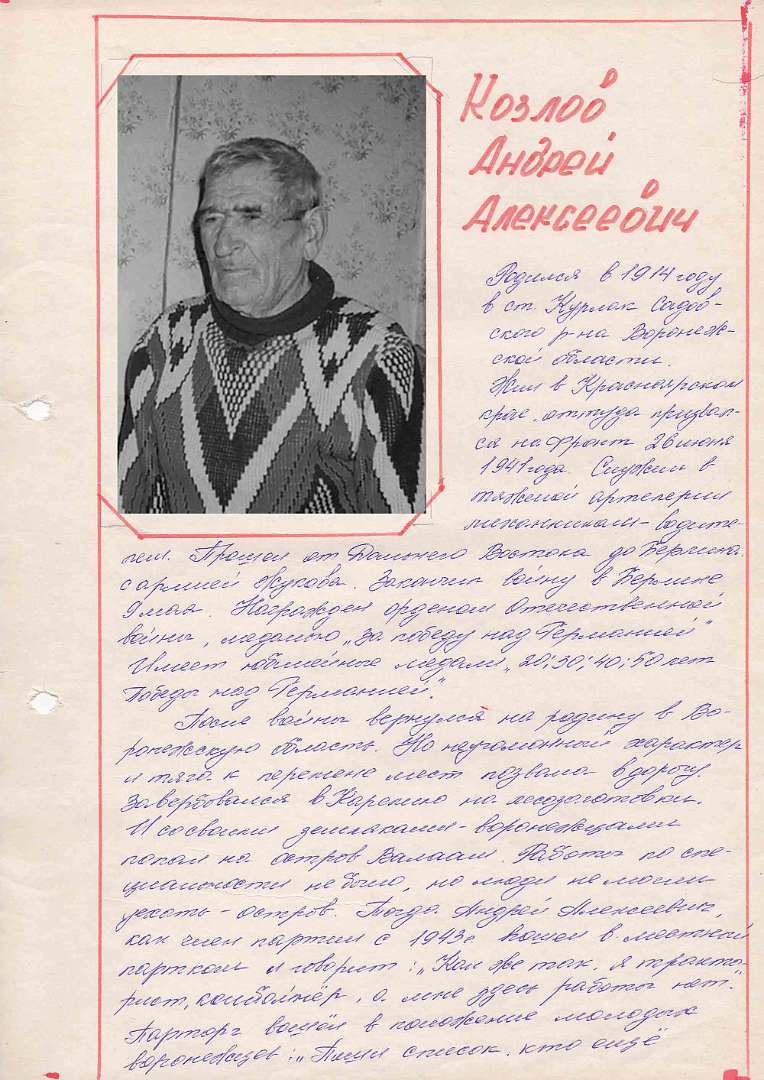 Козлов
Андрей
Алексеевич
Родился в 1914 году
в ст. Курлак Садов-
ского р-на Воронеж-
ской области.
Жил в Красноярском
крае, оттуда призвал-
ся на фронт 26 июня
1941 года. Служил в
тяжелой артелерии
механникам-водите-
лем. Прошел от Дальнего Востока до Берлина
с армией Жукова. Закончил войну в Берлине
9 мая. Награжден орденом Отечественной
войны, медалью „За победу над Германией"
Имеет юбилейные медали „20; 30; 40; 50 лет
Победы над Германией".
После войны вернулся на родину в Во-
ронежскую область. Но неугомонный характер
и тяга к перемене мест позвала в дорогу.
Завербовался в Карелию на лесозаготовки.
И со своими земляками-воронежцами
попал на остров Валаам. Работы по спе-
циальности не было, но люди не могли
уехать - остров. Тогда Андрей Алексеевич,
как член партии с 1943г. пошел в местный
партком и говорит: „Как же так, я тракто-
рист, комбайнёр, а мне здесь работы нет."
Парторг вошёл в положение молодых
воронежцев: „Пиши список, кто ещё